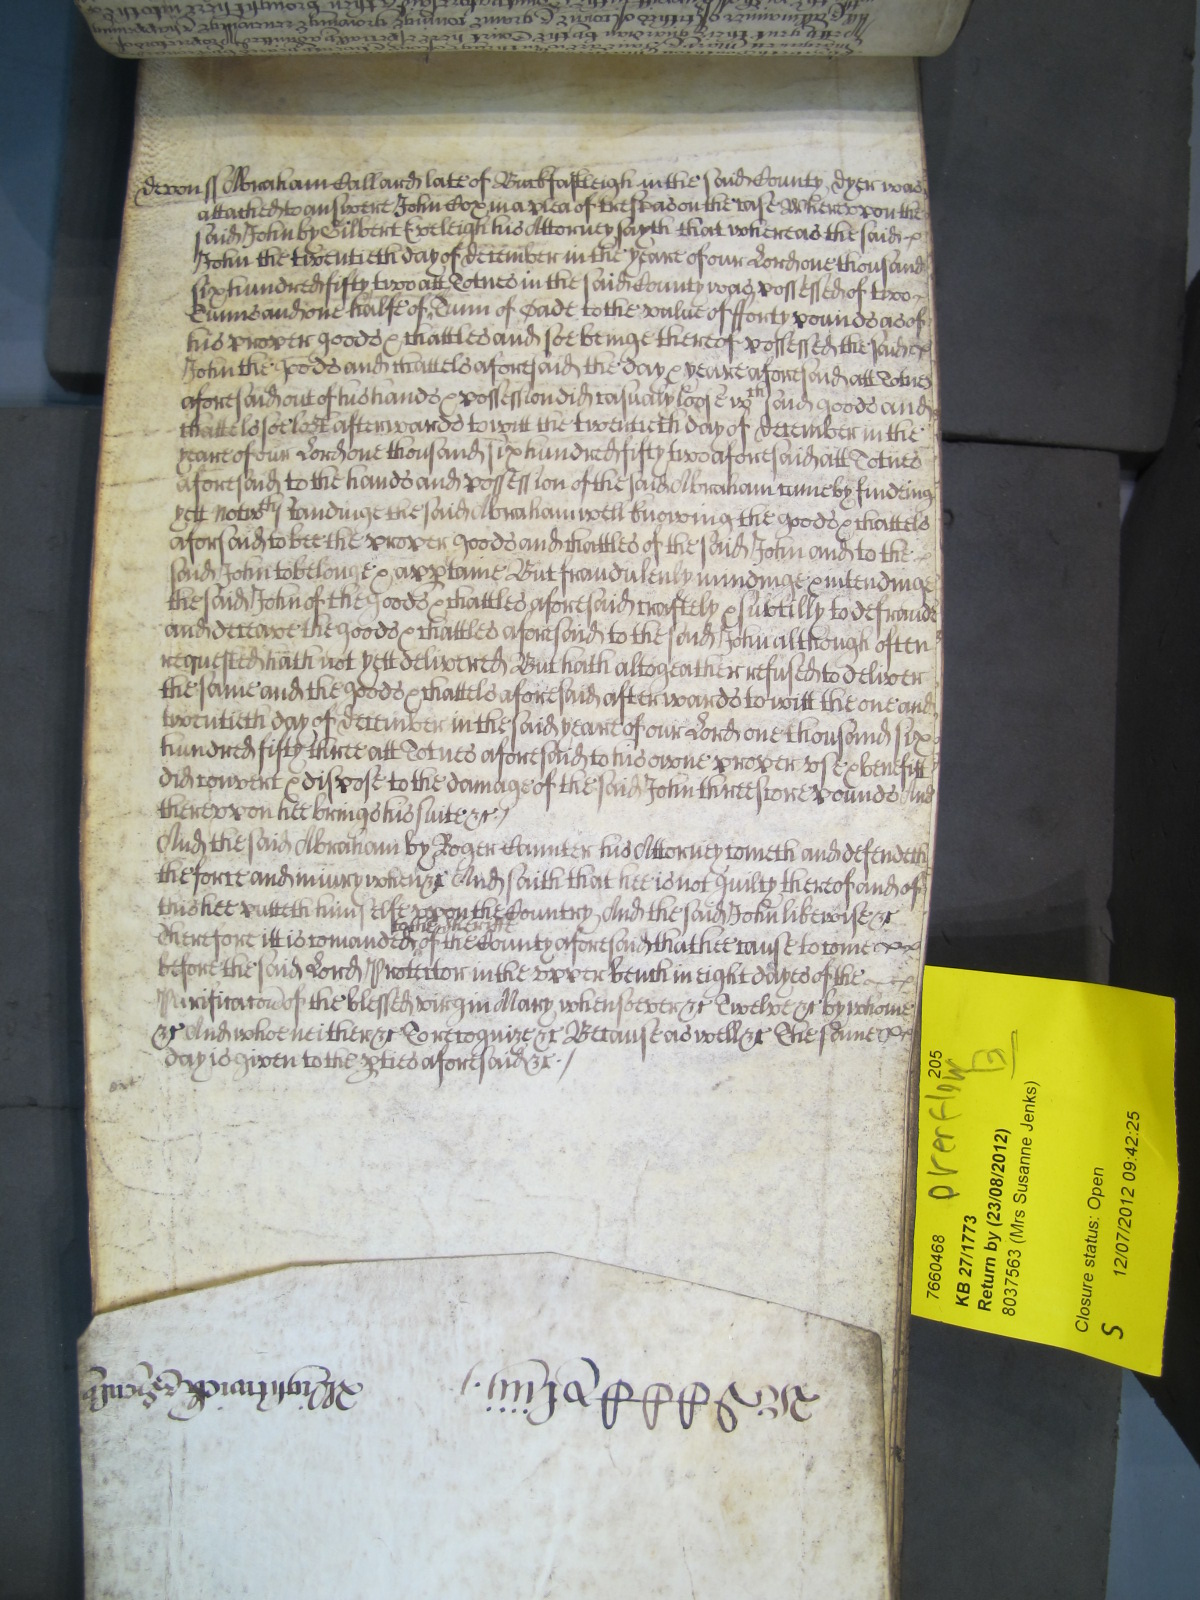 devon ss Abraham Callard late of Buckfastleigh in the said County dyer was
attached to answere John Cox in a plea of trespas on the case Wherevpon the
said John by Gilbert Eveleigh his Attorney sayth that whereas the said
John the twentieth day of december in the yeare of our Lord one thousand
six hundred fifty two att Totnes in the said County was possessed of two
Tunns and one halfe of Tunn of Oade to the value of fforty pounds as of
his proper goods & chattles and soe beinge thereof possessed the said
John the goods and chattels aforesaid the day & yeare aforesaid att Totnes
aforesaid out of his hands & possession did casualy loose wch said goods and
chattels soe lost afterwards to witt the twentieth day of december in the
yeare of our Lord one thousand six hundred fifty two aforesaid att Totnes
aforesaid to the hands and possession of the said Abraham came by findeing
yett notwthstandinge the said Abraham well knowing the goods & chattels
aforsaid to bee the proper goods and chattles of the said John and to the
said John to belonge & appertaine But fraudulenly mindinge & intendinge
the said John of the goods & chattles aforesaid craftely & subtilly to defraude
and deceave the goods & chattles aforesaid to the said John although often
requested hath not yett delivered But hath altogeather refused to deliver
the same and the goods & chattels aforesaid afterwards to witt the one and
twentieth day of december in the said yeare of our Lord one thousand six
hundred fifty three att Totnes aforesaid to his owne proper vse & benefitt
did convert & dispose to the damage of the said John threescore pounds And
therevpon hee brings his suite &c /
And the said Abraham by Roger Caunter his Attorney cometh and defendeth
the force and iniury when &c And saith that hee is not guilty thereof and of
this hee putteth himselfe vpon the Country And the said John likewise &c
to the Sheriffe
Therefore itt is comanded of the County aforesaid that hee cause to come
before the said Lord Protector in the vpper bench in eight dayes of the
Purificacon of the blessed virgin Mary whensoever &c Twelve &c by whome
&c And whoe neither &c To recognize &c Because as well &c The same
day is given to the pties aforesaid &c /
7660468 overflow 205
KB 27/1773
Return by (23/08/2012)
8037563 (Mrs Susanne Jenks)
Closure status: Open
S 12/07/2012 09:42:25